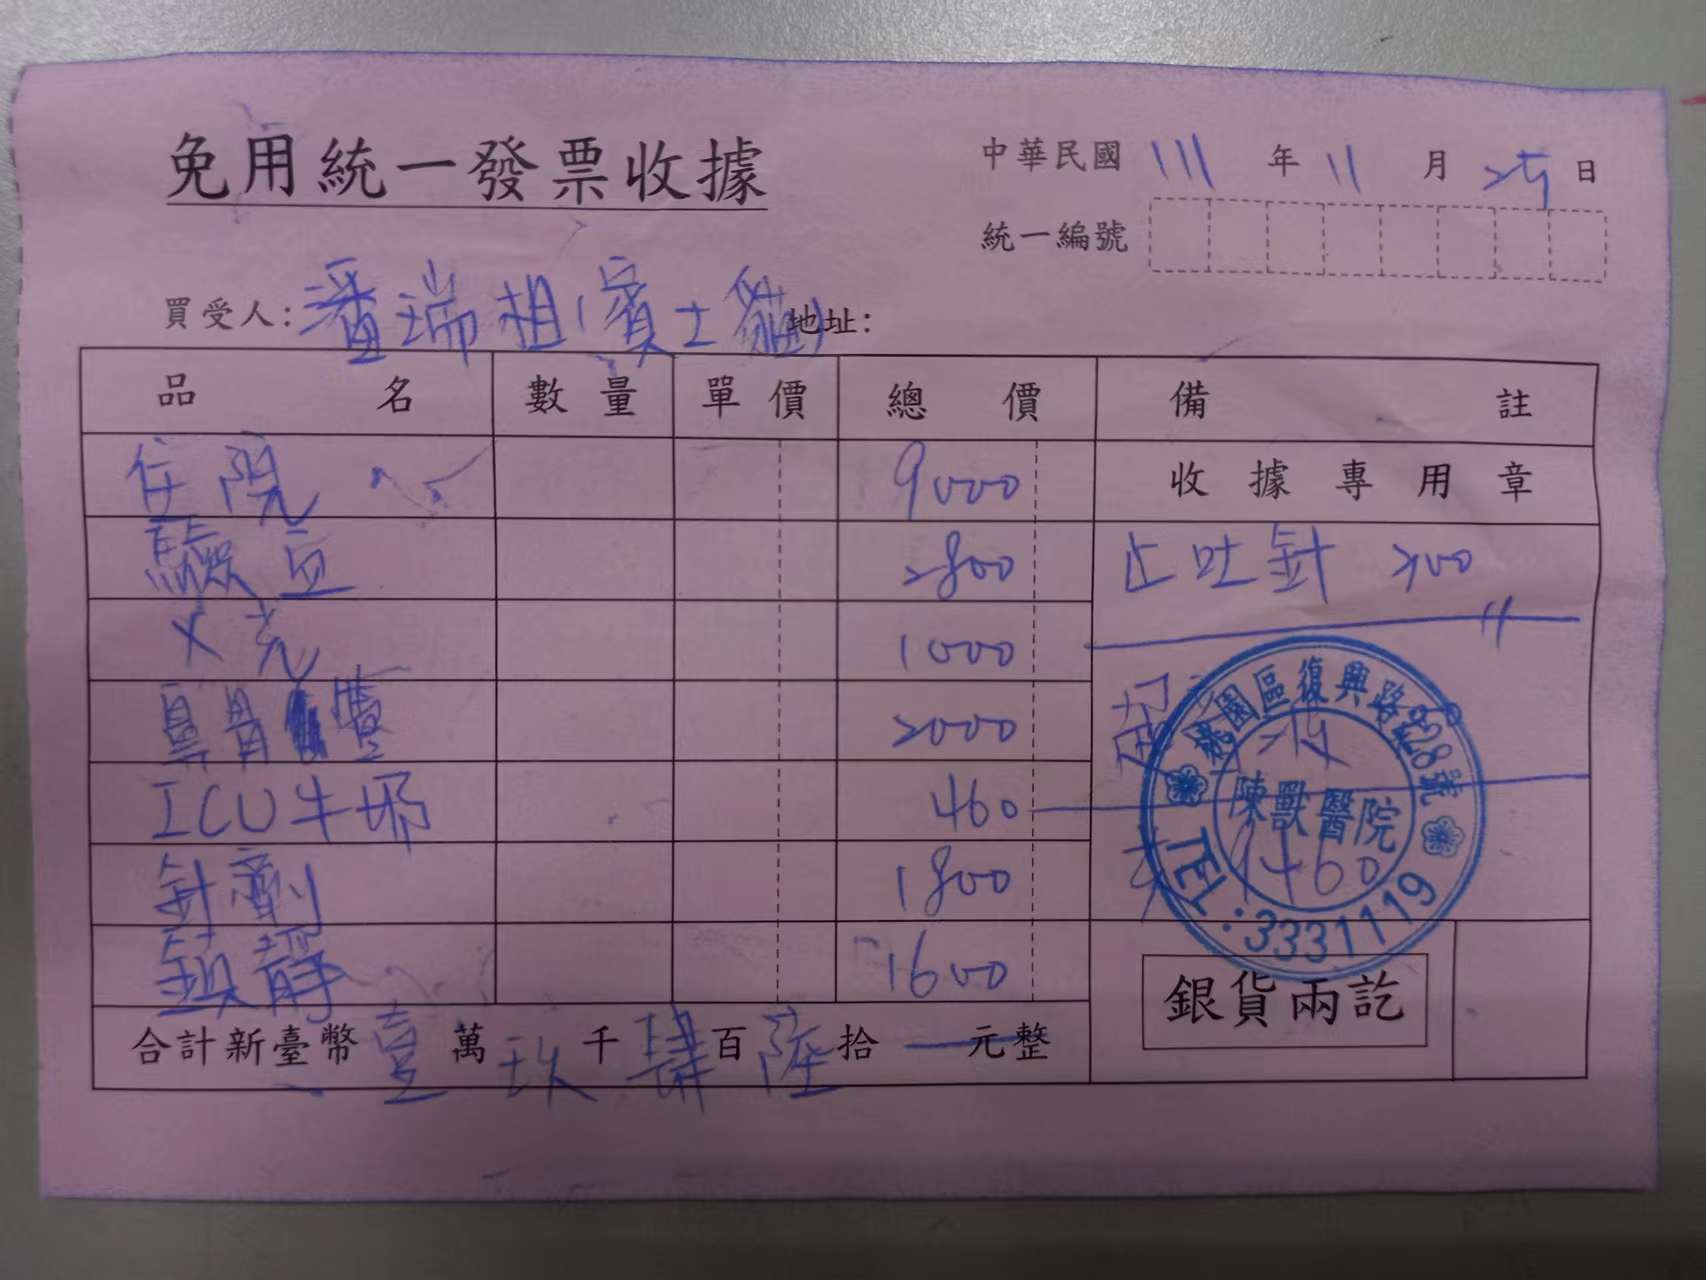 免用統一發票收據
中華民國 111 年 11 月 25 日
統一編號
買受人: 潘瑞祖(賓士貓) 地址:
品名 數量 單價 總價 備註
住院 9000 收據專用章
驗血 2800 止吐針 200
X光 1000
鼻胃 2000
ICU牛奶 460
針劑 1800
鎮靜 1600
合計新臺幣 壹 萬 玖 千 肆 百 陸 拾 元整
1460
桃園區復興路328號
陳獸醫院
TEL:3331119
銀貨兩訖